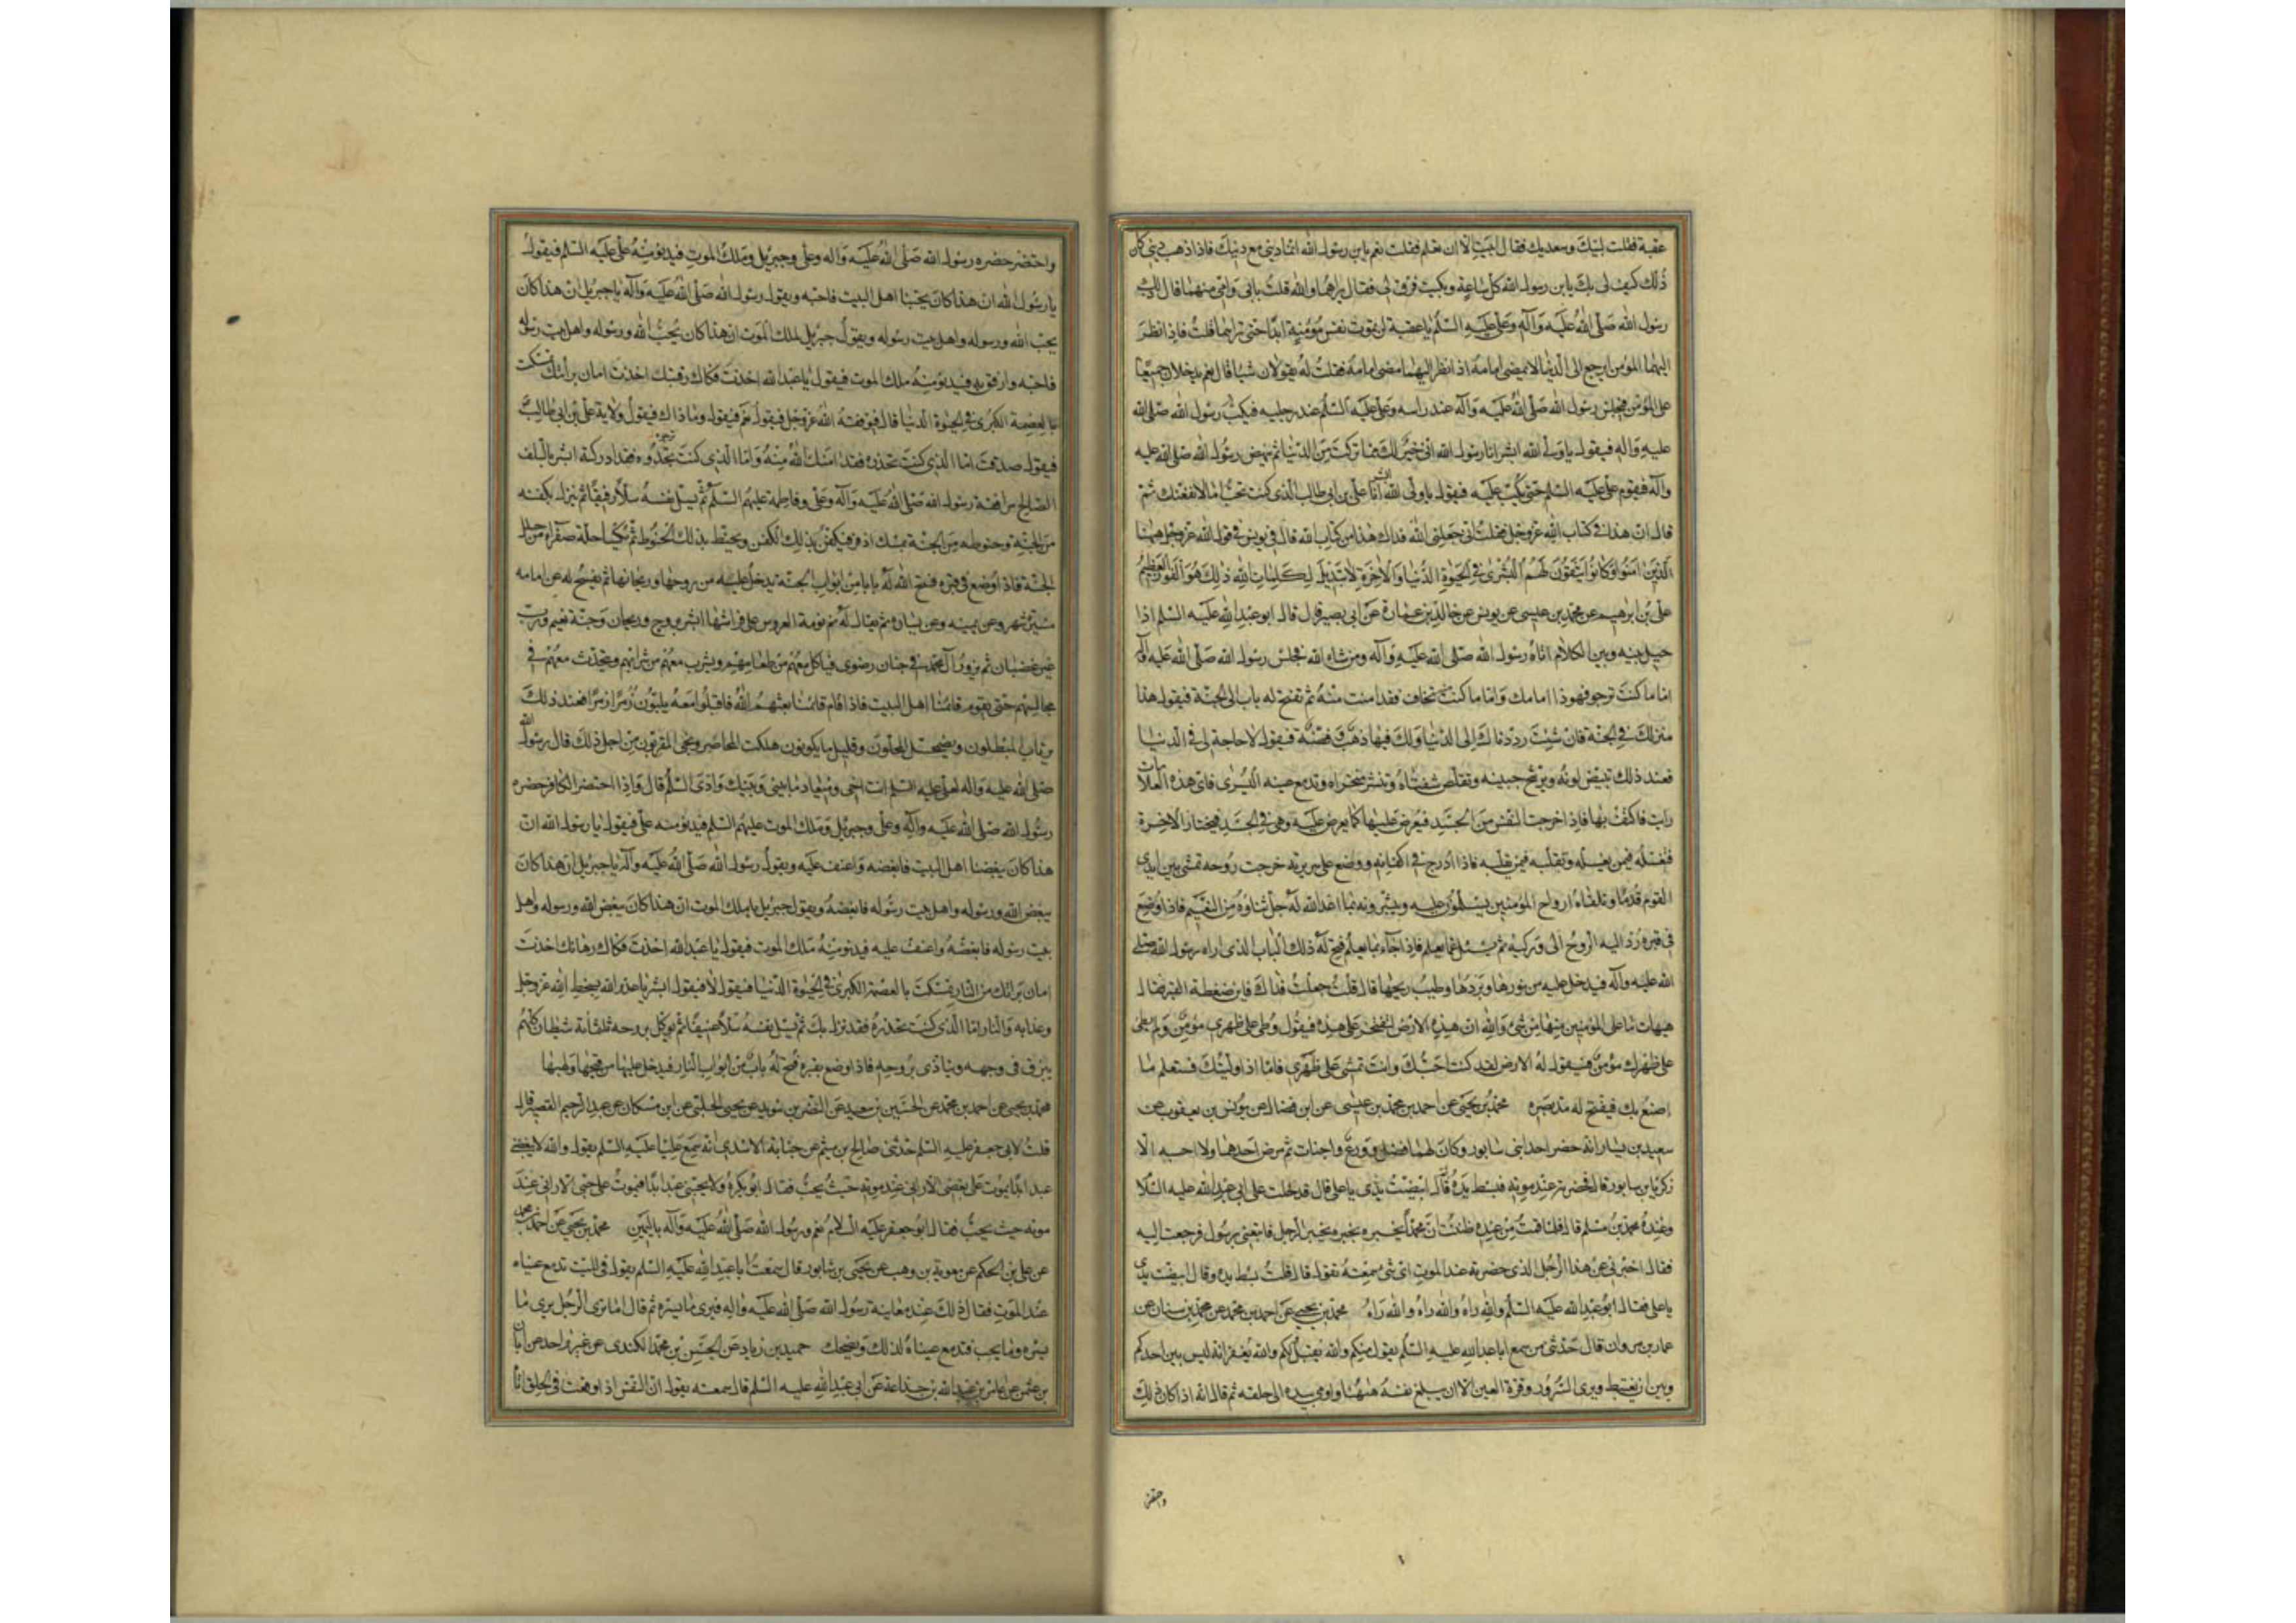 عقبة فقلت لبيك وسعديك فقال ابيت الا ان تعلم فقلت نعم يابن رسول الله انما ديني مع دينك فاذا ذهب ديني كان
ذلك كيف لي بك يابن رسول الله كل ساعة وبكيت فرق لي فقال يراهما والله قلت بابي وامي من هما قال ذلك
رسول الله صلى الله عليه وآله وعلي عليه السلم يا عقبة لن تموت نفس مؤمنة ابدا حتى تراهما قلت فاذا نظر
اليهما المؤمن ايرجع الى الدنيا لا يمضي امامه اذا نظر اليهما مضى امامه فقلت له يقولان شيئا قال نعم يدخلان جميعا
على المؤمن فيجلس رسول الله صلى الله عليه وآله عند راسه وعلي عليه السلم عند رجليه فيكب رسول الله صلى الله
عليه وآله فيقول يا ولي الله ابشر انا رسول الله اني خير لك مما تركت من الدنيا ثم ينهض رسول الله صلى الله عليه
وآله فيقوم علي عليه السلم حتى يكب عليه فيقول يا ولي الله ابشر انا علي بن ابي طالب الذي كنت تحب اما لانفعنك ثم
قال ان هذا في كتاب الله عز وجل فقلت اني جعلني الله فداك هذا من كتاب الله قال في يونس في قول الله عز وجل ههنا
الذين آمنوا وكانوا يتقون لهم البشرى في الحيوة الدنيا والاخرة لا تبديل لكلمات الله ذلك هو الفوز العظيم
علي بن ابرهيم عن محمد بن عيسى عن يونس عن خالد بن عمارة عن ابي بصير قال قال ابو عبد الله عليه السلم اذا
حيل بينه وبين الكلام اتاه رسول الله صلى الله عليه وآله ومن شاء الله فجلس رسول الله صلى الله عليه وآله
اما ما كنت ترجو فهو ذا امامك واما ما كنت تخاف فقد امنت منه ثم تفتح له باب الى الجنة فيقول هذا
منزلك في الجنة فان شئت رددناك الى الدنيا ولك فيها ذهب وفضة فيقول لا حاجة لي في الدنيا
فعند ذلك تبيض لونه ويرشح جبينه وتقلص شفتاه وتنشر منخراه وتدمع عينه اليسرى فاي هذه العلامات
رايت فاكتف بها فاذا خرجت النفس من الجسد فيعرض عليها كما يعرض عليه وهي في الجسد فيختار الاخرة
فتغسله فيمن يغسله وتقلبه فيمن يقلبه فاذا ادرج في اكفانه ووضع على سريره خرجت روحه تمشي بين ايدي
القوم قدما وتلقاه ارواح المؤمنين يسلمون عليه ويبشرونه بما اعد الله له جل ثناؤه من النعيم فاذا وضع
في قبره رد اليه الروح الى وركيه ثم يسئل عما يعلم فاذا جاء بما يعلم فتح له ذلك الباب الذي اراه رسول الله صلى
الله عليه وآله فيدخل عليه من نورها وبردها وطيب ريحها قال قلت جعلت فداك فاين ضغطة القبر فقال
هيهات ما على المؤمنين منها من شئ والله ان هذه الارض لتفتخر على هذه فيقول وطئ على ظهري مؤمن ولم يطئ
على ظهرك مؤمن فيقول له الارض لقد كنت احبك وانت تمشي على ظهري فاما اذا وليتك فستعلم ما
اصنع بك فيفتح له مد بصره محمد بن يحيى عن احمد بن محمد بن عيسى عن ابن فضال عن يونس بن يعقوب عن
سعيد بن يسار انه حضر احد ابني سابور وكان لهما فضل وورع واخبات ثم مرض احدهما ولا احسبه الا
زكريا بن سابور قال فحضرته عند موته فبسط يده ثم قال ابيضت يدي يا علي قال فدخلت على ابي عبد الله عليه السلام
وعنده محمد بن مسلم قال فلما قمت من عنده ظننت ان محمدا يخبره بخبر الرجل فاتبعني برسول فرجعت اليه
فقال اخبرني عن هذا الرجل الذي حضرته عند الموت اي شئ سمعته يقول قال قلت بسط يده وقال ابيضت يدي
يا علي فقال ابو عبد الله عليه السلم والله راه والله راه والله راه محمد بن يحيى عن احمد بن محمد عن محمد بن سنان عن
عمار بن مروان قال حدثني من سمع ابا عبد الله عليه السلم يقول منكم والله يقبل ولكم والله يغفر انه ليس بين احدكم
وبين ان يغتبط ويرى السرور وقرة العين الا ان يبلغ نفسه ههنا واومى بيده الى حلقه ثم قال انه اذا كان ذلك
واحتضر
واحتضر حضره رسول الله صلى الله عليه وآله وعلي وجبريل وملك الموت فيدنو منه علي عليه السلم فيقول
يا رسول الله ان هذا كان يحبنا اهل البيت فاحبه ويقول رسول الله صلى الله عليه وآله يا جبريل ان هذا كان
يحب الله ورسوله واهل بيت رسوله ويقول جبريل لملك الموت ان هذا كان يحب الله ورسوله واهل بيت رسوله
فاحبه وارفق به فيدنو منه ملك الموت فيقول يا عبد الله اخذت فكاك رقبتك اخذت امان براءتك تمسكت
بالعصمة الكبرى في الحيوة الدنيا قال فيوفقه الله عز وجل فيقول نعم فيقول وما ذاك فيقول ولاية علي بن ابي طالب
فيقول صدقت اما الذي كنت تحذره فقد امنك الله منه واما الذي كنت ترجوه فقد ادركته ابشر بالسلف
الصالح مرافقة رسول الله صلى الله عليه وآله وعلي وفاطمة عليهم السلم ثم يسل نفسه سلا رفيقا ثم ينزل بكفنه
من الجنة وحنوطه من الجنة بمسك اذفر فيكفن بذلك الكفن ويحنط بذلك الحنوط ثم يكسى حلة صفراء من حلل
الجنة فاذا وضع في قبره فتح الله له بابا من ابواب الجنة يدخل عليه من روحها وريحانها ثم يفسح له عن امامه
مسيرة شهر وعن يمينه وعن يساره ثم يقال له نم نومة العروس على فراشها ابشر بروح وريحان وجنة نعيم ورب
غير غضبان ثم يزور آل محمد في جنان رضوى فياكل معهم من طعامهم ويشرب معهم من شرابهم ويتحدث معهم في
مجالسهم حتى يقوم قائمنا اهل البيت فاذا قام قائمنا بعثهم الله فاقبلوا معه يلبون زمرا زمرا فعند ذلك
يرتاب المبطلون ويضمحل المحلون وقليل ما يكونون هلكت المحاضير ونجى المقربون من اجل ذلك قال رسول الله
صلى الله عليه وآله لعلي عليه السلم انت اخي وميعاد ما بيني وبينك وادي السلم قال واذا احتضر الكافر حضره
رسول الله صلى الله عليه وآله وعلي وجبريل وملك الموت عليهم السلم فيدنو منه علي فيقول يا رسول الله ان
هذا كان يبغضنا اهل البيت فابغضه واعنف عليه ويقول رسول الله صلى الله عليه وآله يا جبريل ان هذا كان
يبغض الله ورسوله واهل بيت رسوله فابغضه ويقول جبريل يا ملك الموت ان هذا كان يبغض الله ورسوله واهل
بيت رسوله فابغضه واعنف عليه فيدنو منه ملك الموت فيقول يا عبد الله اخذت فكاك رهانك اخذت
امان براءتك من النار تمسكت بالعصمة الكبرى في الحيوة الدنيا فيقول لا فيقول ابشر يا عدو الله بسخط الله عز وجل
وعذابه والنار اما الذي كنت تحذره فقد نزل بك ثم يسل نفسه سلا عنيفا ثم يوكل بروحه ثلثمائة شيطان كلهم
يبزق في وجهه ويتاذى بروحه فاذا وضع بقبره فتح له باب من ابواب النار فيدخل عليها من قيحها ولهبها
محمد بن يحيى عن احمد بن محمد عن الحسين بن سعيد عن النضر بن سويد عن يحيى الحلبي عن ابن مسكان عن عبد الرحيم القصير قال
قلت لابي جعفر عليه السلم حدثني صالح بن ميثم عن عباية الاسدي انه سمع عليا عليه السلم يقول والله لا يبغضني
عبد ابدا يموت على بغضي الا راني عند موته حيث يكره ولا يحبني عبد ابدا فيموت على حبي الا راني عند
موته حيث يحب فقال ابو جعفر عليه السلام نعم ورسول الله صلى الله عليه وآله باليمين محمد بن يحيى عن احمد بن محمد
عن علي بن الحكم عن معوية بن وهب عن يحيى بن شابور قال سمعت ابا عبد الله عليه السلم يقول في الميت تدمع عيناه
عند الموت فقال ذلك عند معاينة رسول الله صلى الله عليه وآله فيرى ما يسره ثم قال اما ترى الرجل يرى ما
يسره وما يحب فتدمع عيناه لذلك ويضحك حميد بن زياد عن الحسن بن محمد الكندي عن غير واحد عن ابان
بن عثمن عن عامر بن عبد الله بن جذاعة عن ابي عبد الله عليه السلم قال سمعته يقول ان النفس اذا وقعت في الحلق اتاه